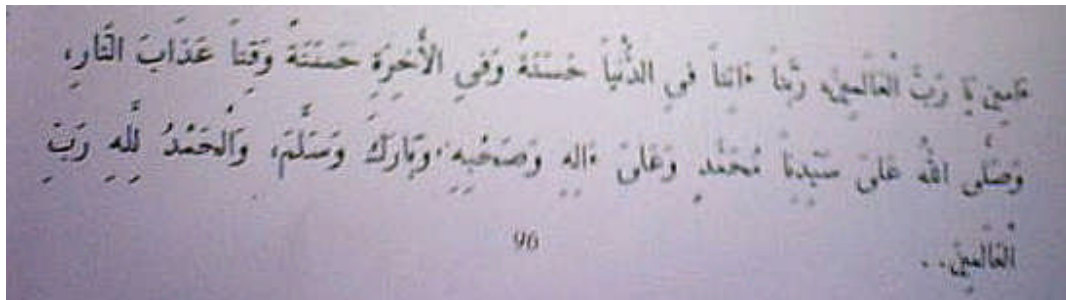 ءَامِين يَا رَبَّ الْعَالَمِينَ، رَبَّنَا ءَاتِنَا فِي الدُّنْيَا حَسَنَةً وَفِي الْأَخِرَةِ حَسَنَةً وَقِنَا عَذَابَ النَّارِ،
وَصَلَّى اللهُ عَلَىٰ سَيِّدِنَا مُحَمَّدٍ وَعَلَىٰ ءَالِهِ وَصَحْبِهِ، وَبَارَكَ وَسَلَّمَ، وَالْحَمْدُ لِلَّهِ رَبِّ
الْعَالَمِينَ..
96